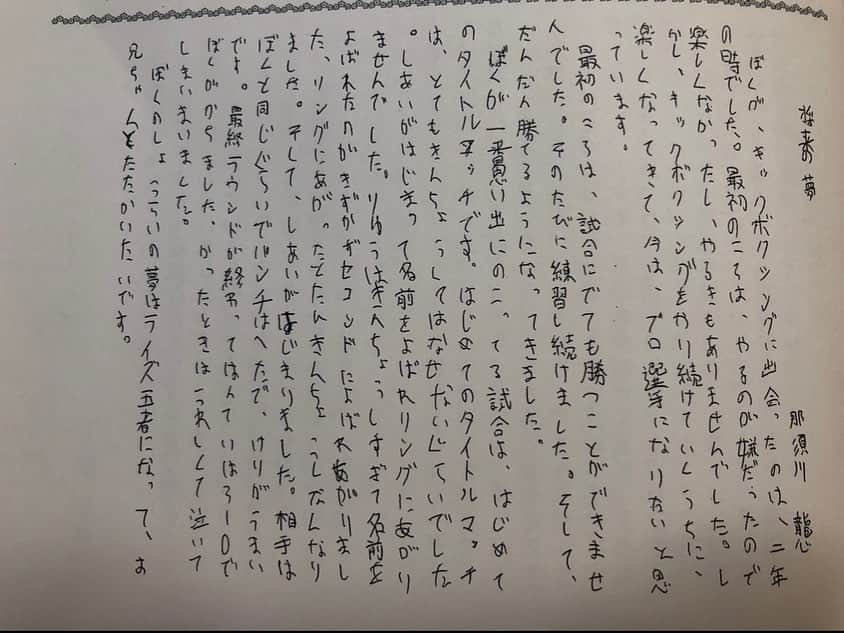 将来の夢
那須川 龍心
ぼくが、キックボクシングに出会ったのは、二年
の時でした。最初のころは、やるのが嫌だったので
楽しくなかったし、やるきもありませんでした。し
かし、キックボクシングをやり続けていくうちに、
楽しくなってきて、今は、プロ選手になりたいと思
っています。
最初のころは、試合にでても勝つことができませ
んでした。そのたびに練習し続けました。そして、
だんだん勝てるようになってきました。
ぼくが一番思い出にのこってる試合は、はじめて
のタイトルマッチです。はじめてのタイトルマッチ
は、とてもきんちょうしてはなせないぐらいでした
。しあいがはじまって名前をよばれリングにあがり
ませんでした。りゆうはきんちょうしすぎて名前を
よばれたのがきずかずセコンドによばれあがりまし
た、リングにあがったとたんきんちょうしなんなり
ました。そして、しあいがはじまりました。相手は
ぼくと同じぐらいでパンチはへたで、けりがうまい
です。最終ラウンドが終わってはんていは3-0で
ぼくがかちました、かったときはうれしくて泣いて
しまいまいました。
ぼくのしょうらいの夢はライズ王者になって、お
兄ちゃんとたたかいたいです。